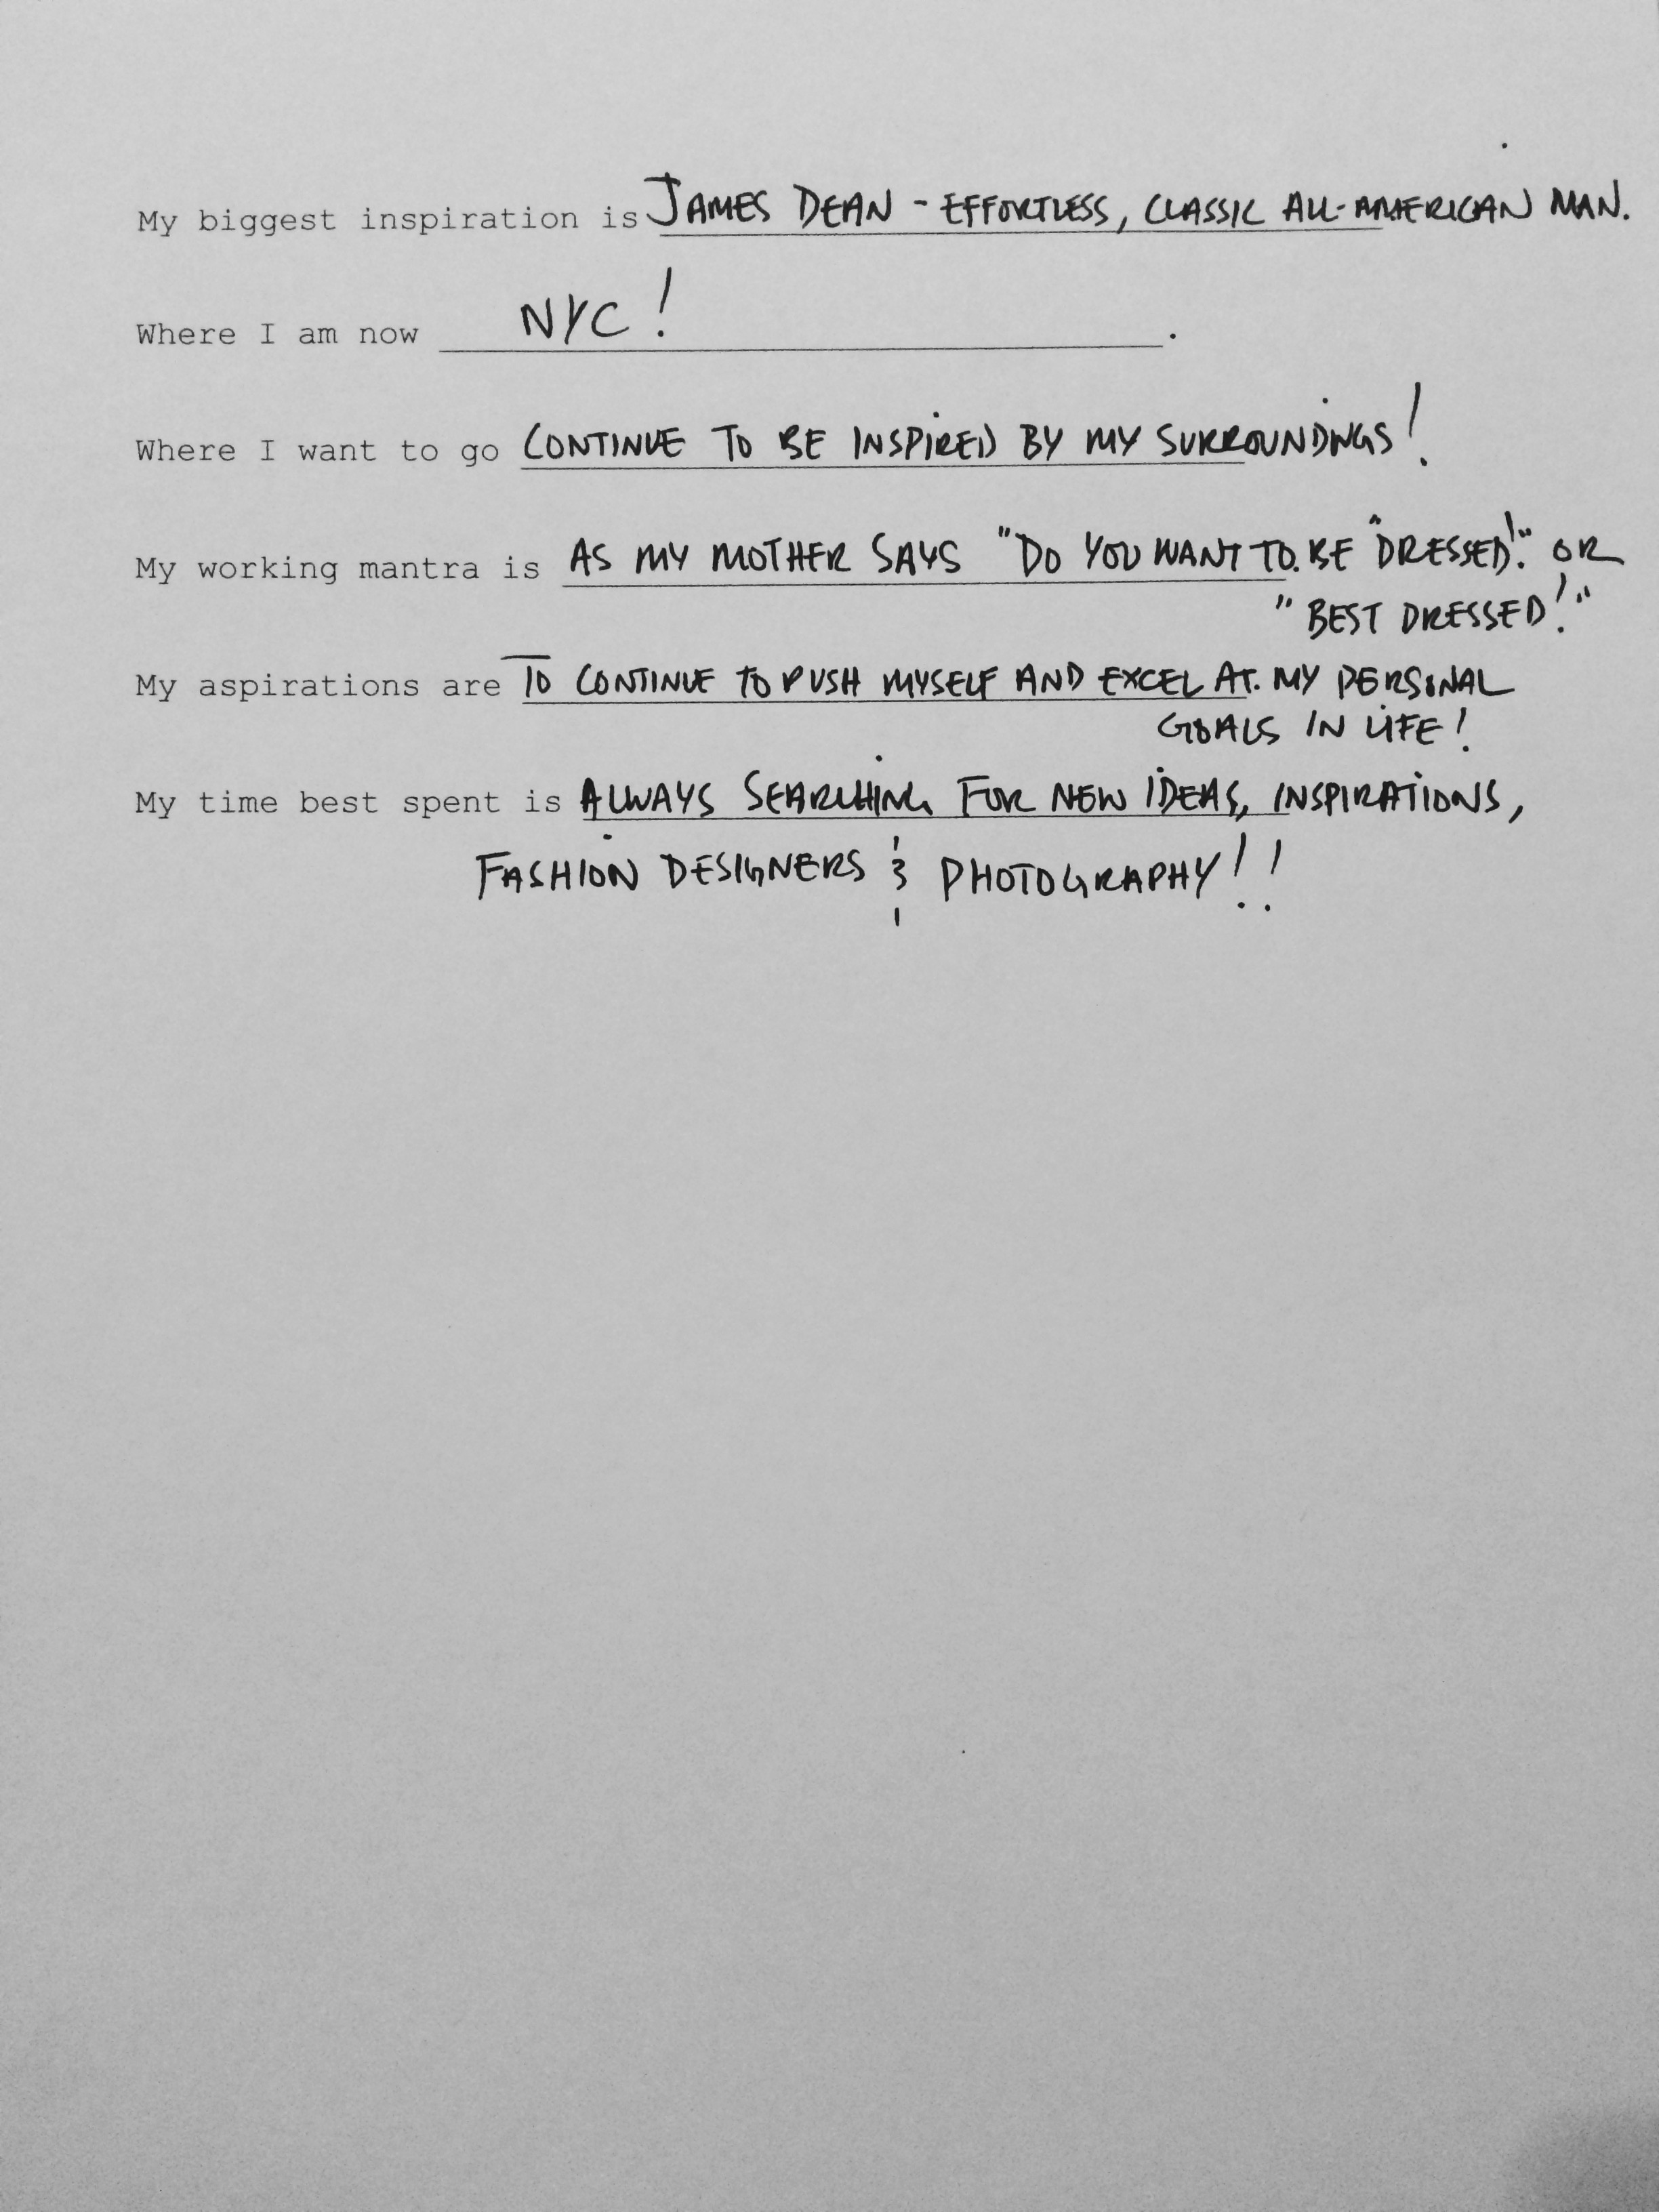 My biggest inspiration is JAMES DEAN - EFFORTLESS, CLASSIC ALL-AMERICAN MAN.
Where I am now NYC! .
Where I want to go CONTINUE TO BE INSPIRED BY MY SURROUNDINGS!
My working mantra is AS MY MOTHER SAYS "DO YOU WANT TO BE "DRESSED!" OR
"BEST DRESSED!"
My aspirations are TO CONTINUE TO PUSH MYSELF AND EXCEL AT MY PERSONAL
GOALS IN LIFE!
My time best spent is ALWAYS SEARCHING FOR NEW IDEAS, INSPIRATIONS,
FASHION DESIGNERS & PHOTOGRAPHY!!